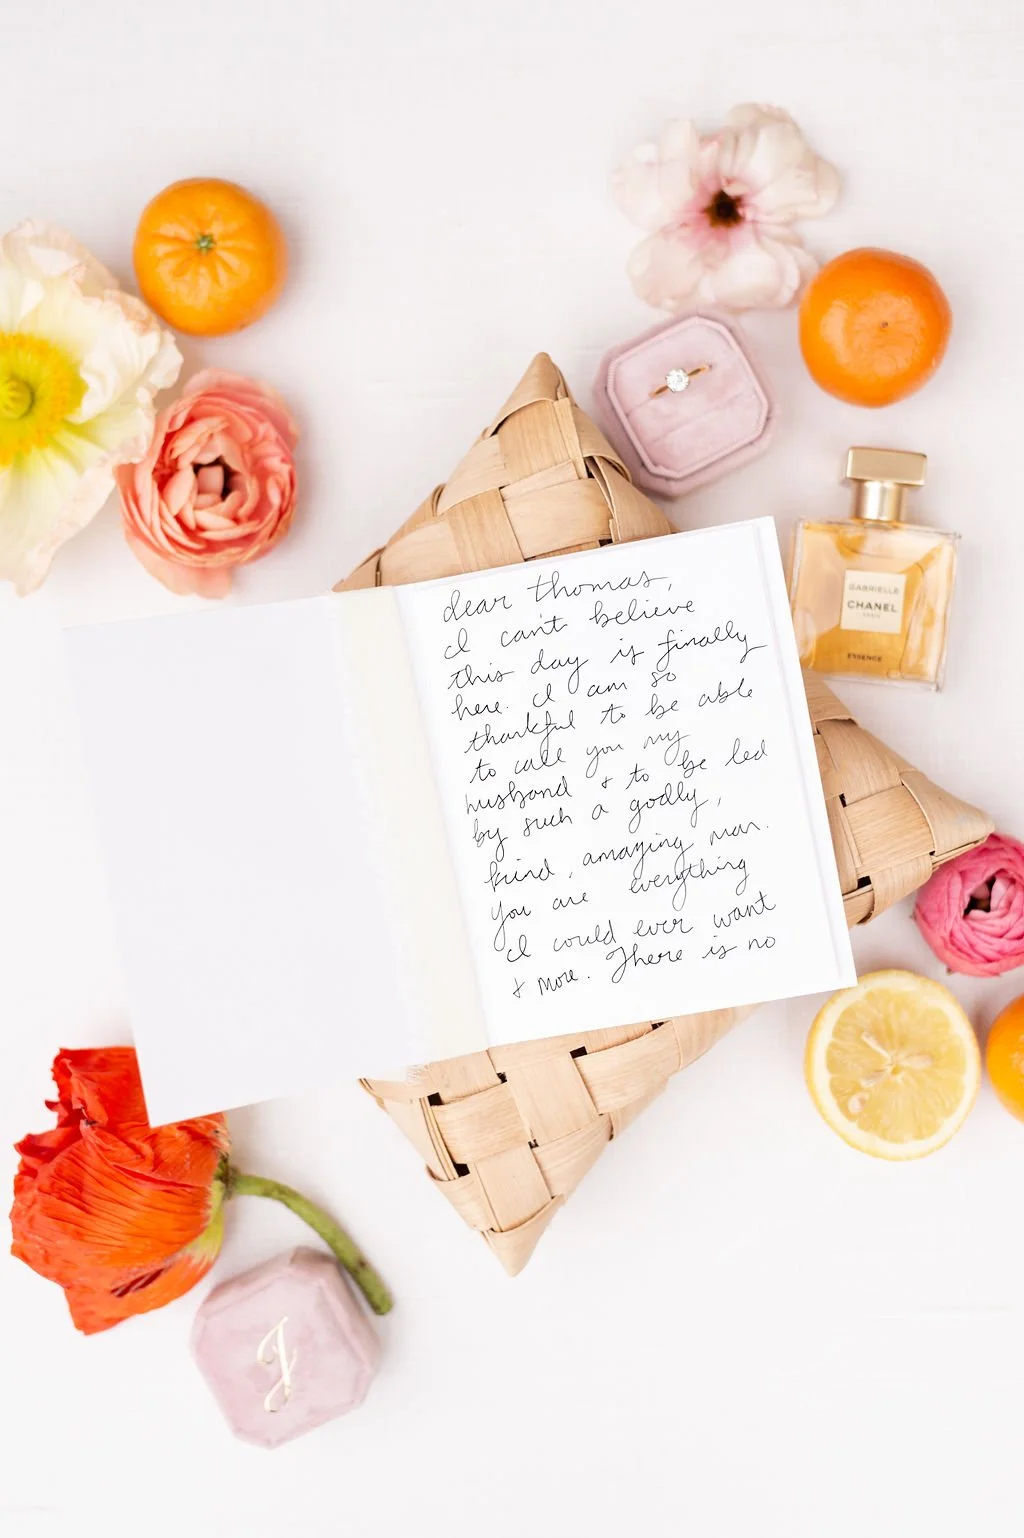 dear thomas,
I can't believe
this day is finally
here. I am so
thankful to be able
to call you my
husband & to be led
by such a godly,
kind, amazing man.
You are everything
I could ever want
& more. There is no
GABRIELLE
CHANEL
PARIS
ESSENCE
J